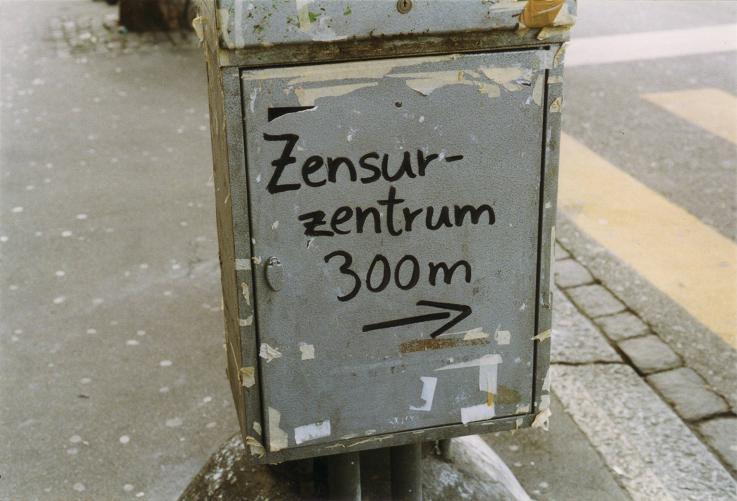 Zensur-
zentrum
300m